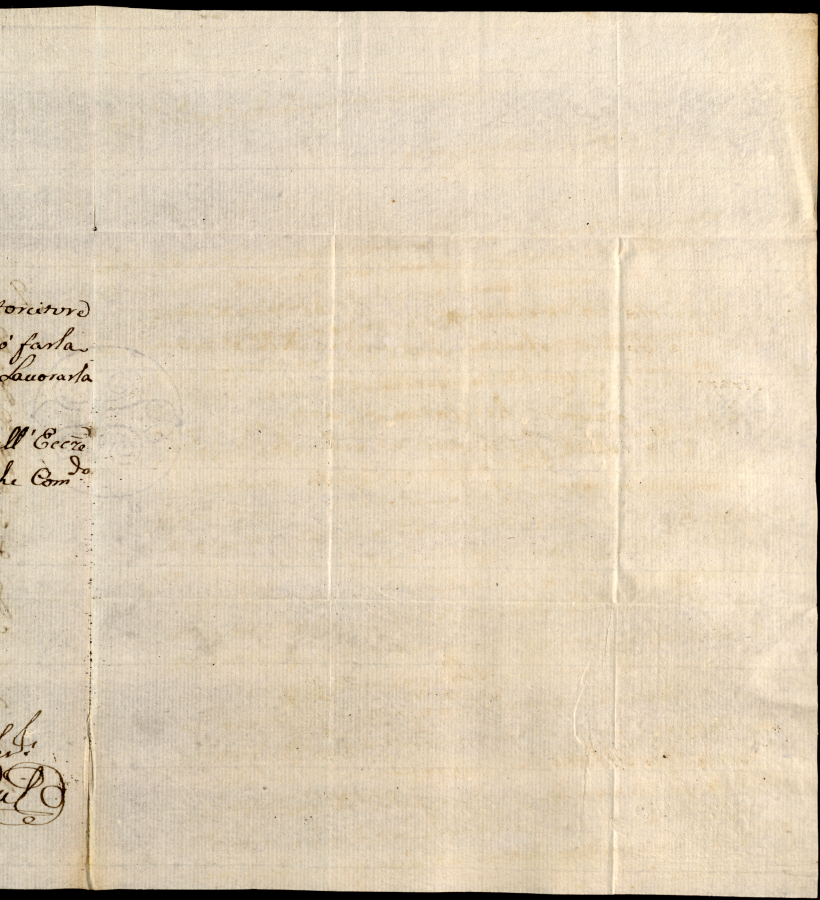 torcitore
ò farla
Lauorarla
ll' Ecc:ze
he Com:do